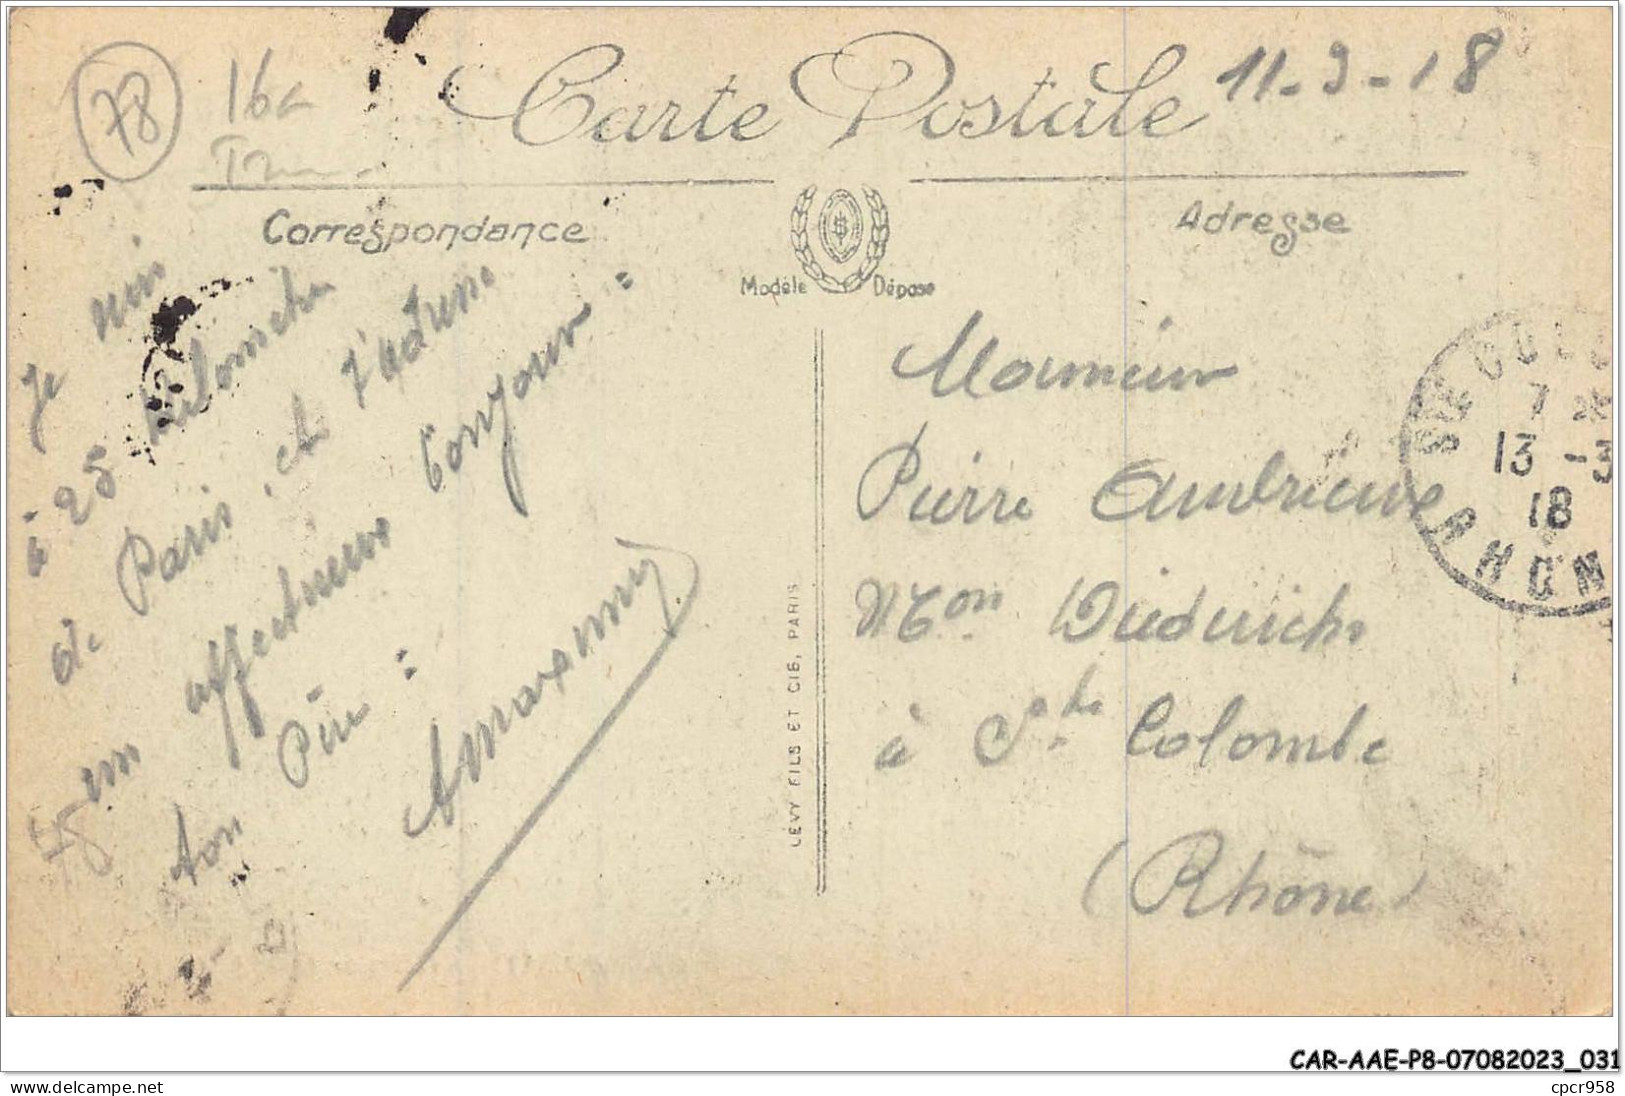 78
16c
Carte Postale
11-3-18
Correspondance
Adresse
Modèle Déposé
Je suis
à 25 kilomètres
de Paris, et t'adresse
un affectueux bonjour =
ton Père =
LÉVY FILS ET CIE, PARIS
Monsieur
Pierre
Mon Diederichs
à Ste Colombe
(Rhône)
STE COLO
7 *
13 -3
18
RHON
CAR-AAE-P8-07082023_031
www.delcampe.net
cpcr958